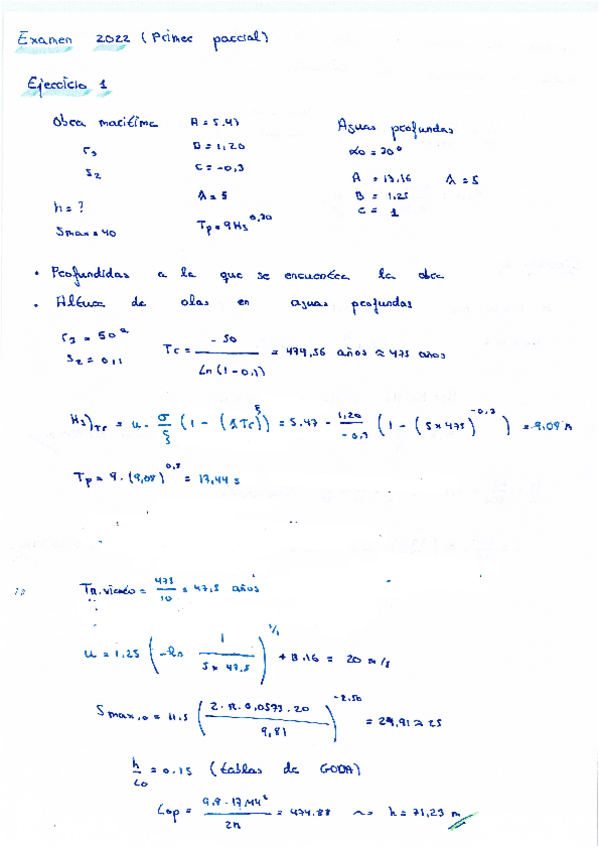 Examen 2022 (Primer parcial)
Ejercicio 1
Obra marítima A = 5.47 Aguas profundas
r3 B = 1,20 αo = 30°
s2 C = -0,3 A = 13.16 λ = 5
h = ? λ = 5 B = 1.25
Smax = 40 Tp = 9Hs^0,30 C = 1
• Profundidas a la que se encuentra la obra
• Altura de olas en aguas profundas
r3 = 50 a
s2 = 0,1 Tr = -50 / Ln(1-0,1) = 474,56 años ≈ 475 años
Hs)Tr = u - σ/ξ (1 - (λTr)^ξ) = 5.47 - 1,20/-0,3 (1 - (5×475)^-0,3) = 9,08 m
Tp = 9 · (9,08)^0,3 = 17,44 s
Tr.viento = 475/10 = 47,5 años
u = 1.25 (-ln 1/(5×47.5))^1/1 + 13.16 = 20 m/s
Smax,o = 11.5 (2·π·0,0573·20 / 9,81)^-2.50 = 24,91 ≈ 25
h/Lo = 0.15 (tablas de GODA)
Lop = 9.8·17,44² / 2π = 474.88 ~> h = 71,23 m